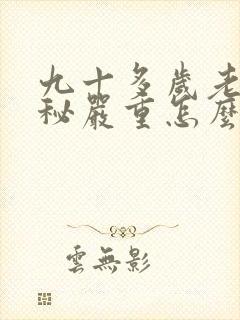 九十多歲老
秘嚴重怎麼
雲無影